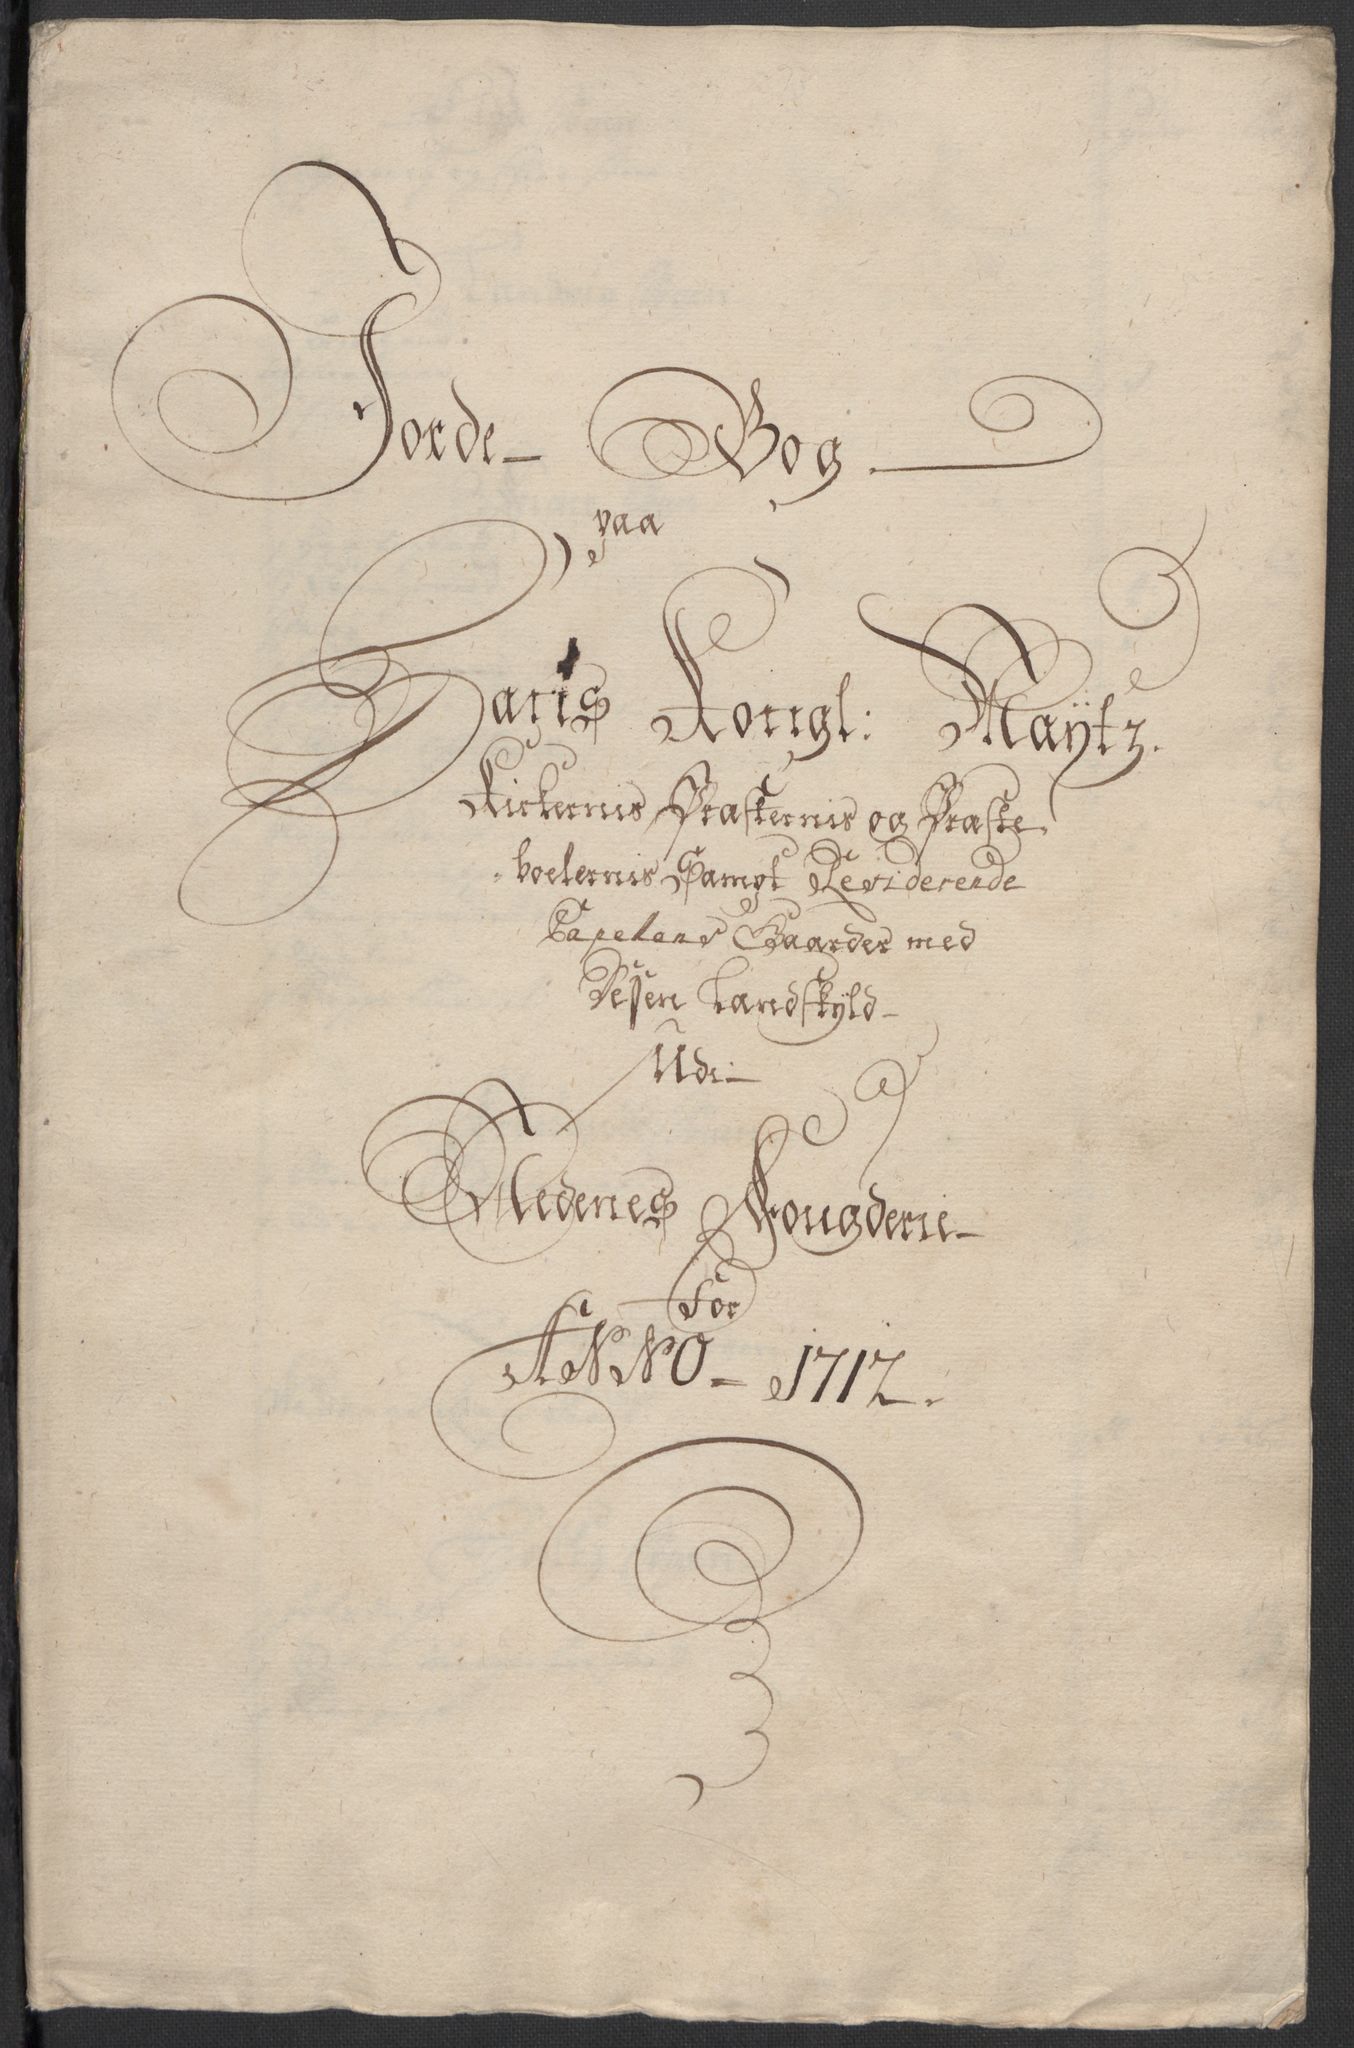 Jorde- Bog
paa
Hans Kongl: Maÿtz.
Kirkernis Præsternis og Præste
boelernis Sampt Reviderende
Capelans Gaarder med
Desen Landskÿld
Udi
Nedenes Fougderie
For
ANNO 1712.